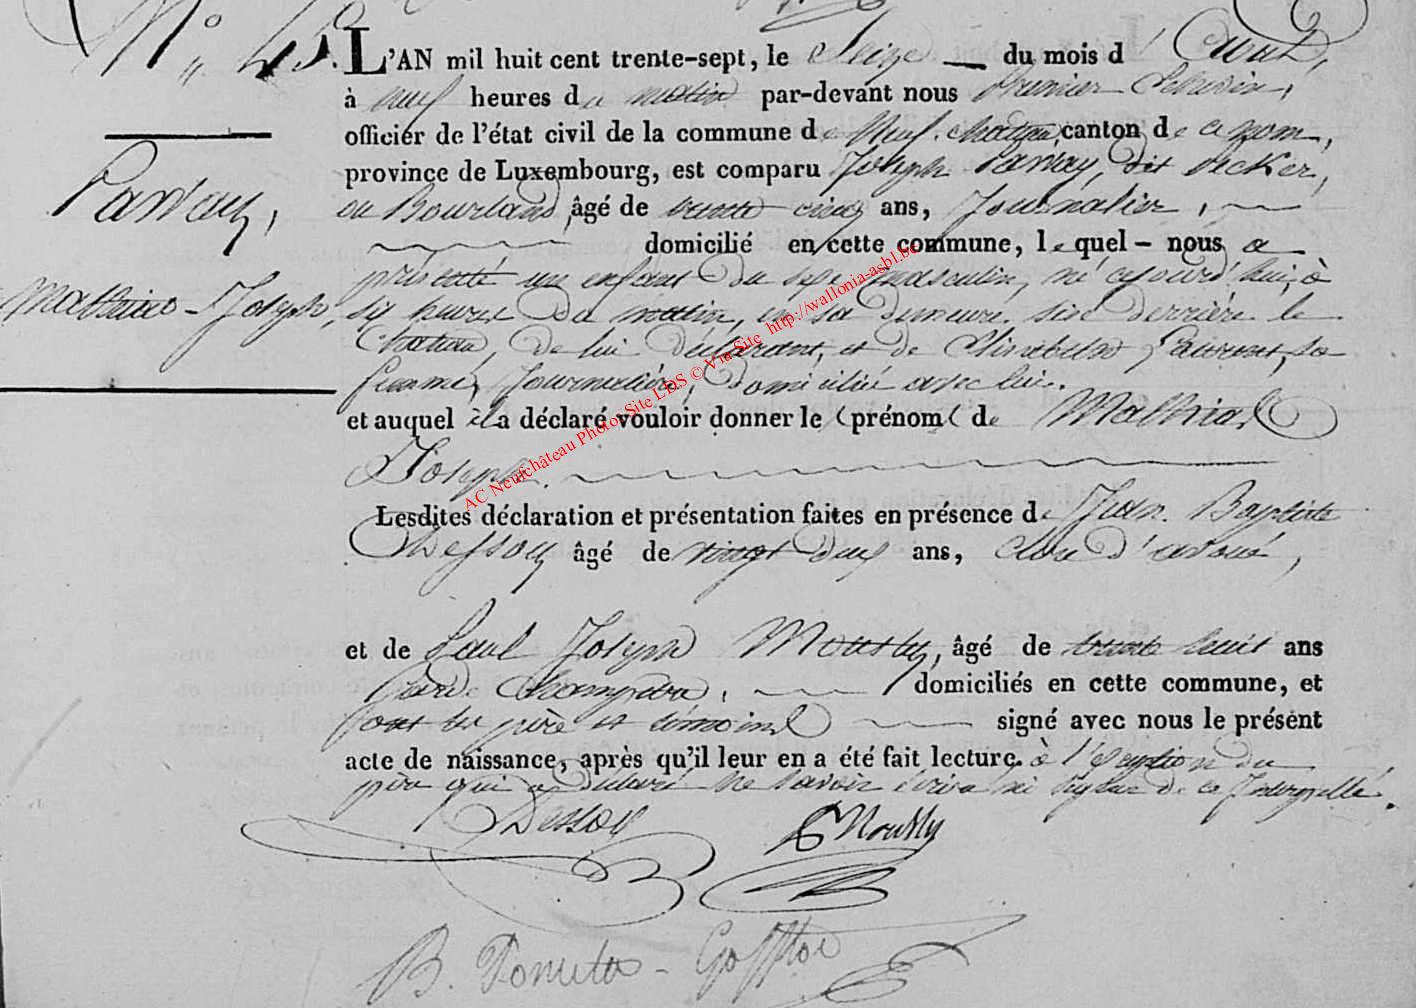 N° 45.
L'AN mil huit cent trente-sept, le Seize du mois d'Août,
à neuf heures du matin par-devant nous premier Echevin,
officier de l'état civil de la commune de Neufchateau, canton de ce nom,
province de Luxembourg, est comparu Joseph Panray, dit Decker,
ou Bourland, âgé de trente cinq ans, Journalier,
domicilié en cette commune, lequel nous a
présenté un enfant du sexe masculin, né cejourd'hui, à
six heures du matin, en sa demeure sise derrière le
Chateau, de lui déclarant, et de Laurent, sa
femme, Journalière, domiciliée avec lui.
et auquel il a déclaré vouloir donner les prénoms de Mathias
Joseph.
Lesdites déclaration et présentation faites en présence de Jean Baptiste
Dessoy âgé de vingt deux ans, clerc d'avoué,
et de Paul Joseph Mousty, âgé de trente huit ans
garde champêtre, domiciliés en cette commune, et
ont les père et témoins signé avec nous le présent
acte de naissance, après qu'il leur en a été fait lecture. à l'exception du
père qui a déclaré ne savoir écrire ni signer de ce Interpellé.
Panray,
Mathias-Joseph,
Dessoy
Mousty
B. Poncelet-Goffloe
AC Neufchâteau Photos Site LDS © Via Site http://wallonia-asbl.be